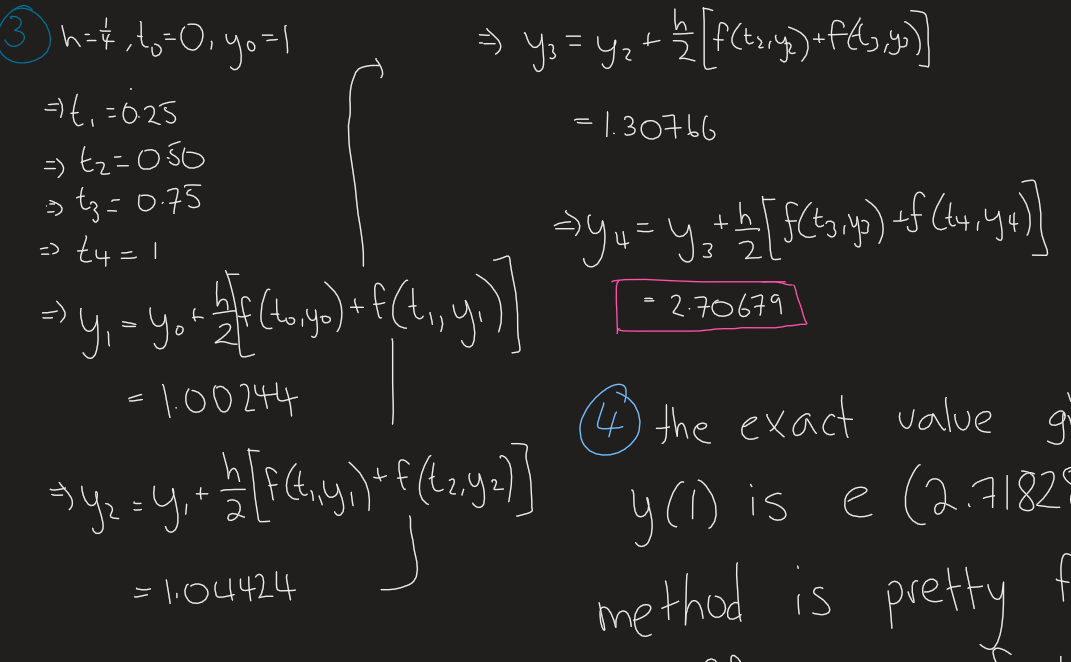 3 h=1/4, t₀=0, y₀=1
⇒ t₁ = 0.25
⇒ t₂ = 0.50
⇒ t₃ = 0.75
⇒ t₄ = 1
⇒ y₁ = y₀ + h/2 [f(t₀,y₀) + f(t₁,y₁)]
= 1.00244
⇒ y₂ = y₁ + h/2 [f(t₁,y₁) + f(t₂,y₂)]
= 1.04424
⇒ y₃ = y₂ + h/2 [f(t₂,y₂) + f(t₃,y₃)]
= 1.30766
⇒ y₄ = y₃ + h/2 [f(t₃,y₃) + f(t₄,y₄)]
= 2.70679
4 the exact value
y(1) is e (2.71828
method is pretty